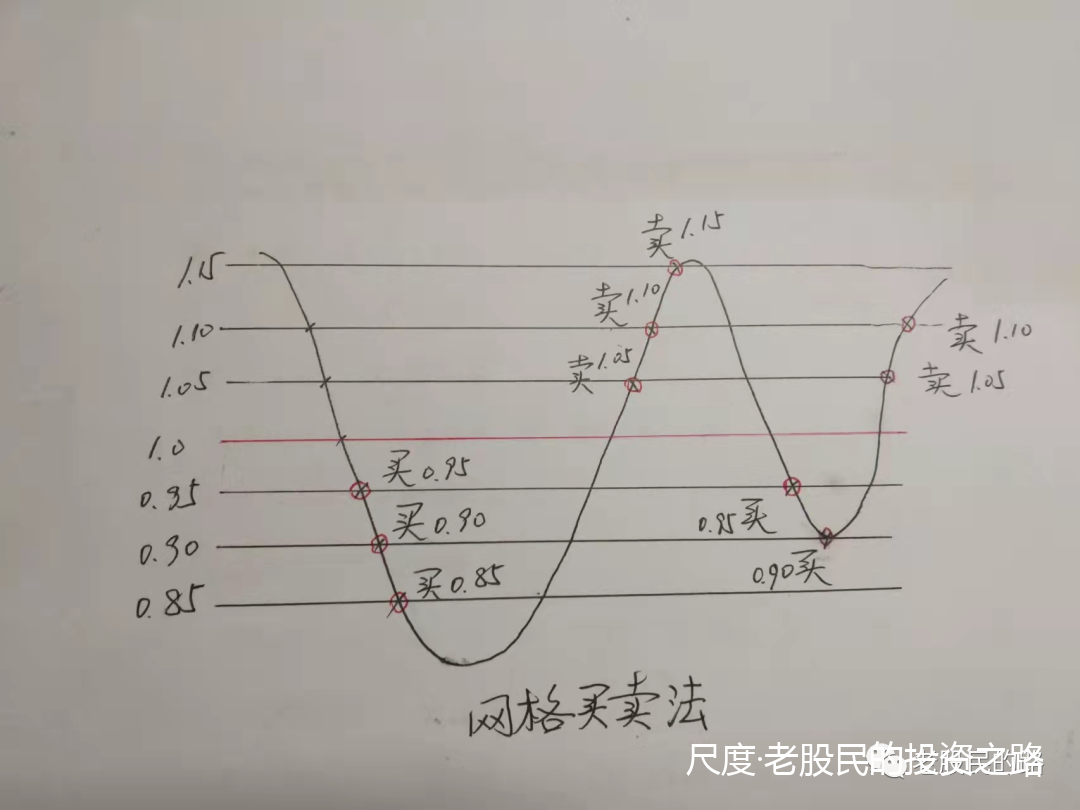 卖1.15
1.15
卖1.10
1.10
卖1.10
卖1.05
1.05
卖1.05
1.0
买0.95
0.95
买0.90
0.95买
0.90
买0.85
0.90买
0.85
网格买卖法
尺度·老股民的投资之路